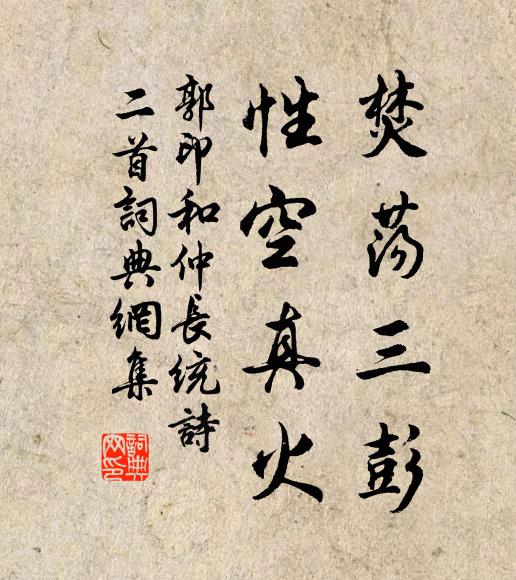 焚蕩三彭
性空真火
郭印和仲長統詩
二首詞典網集
詞典
网印